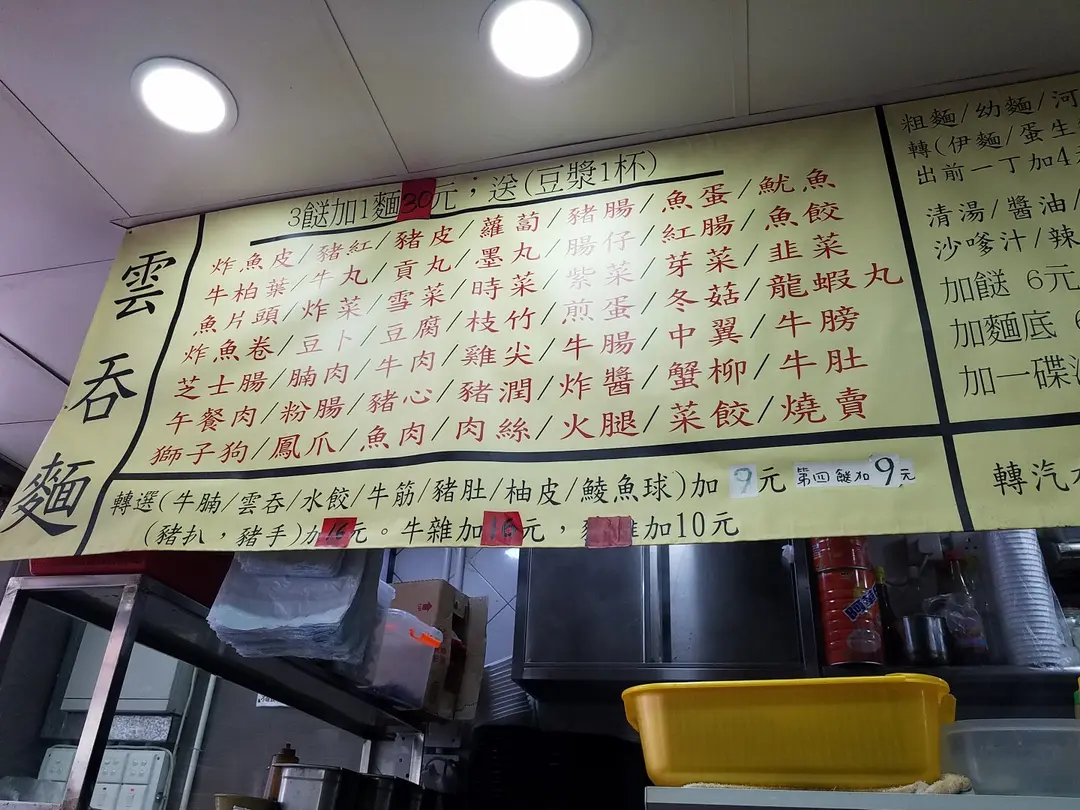 雲吞麵
3餸加1麵30元；送(豆漿1杯)
炸魚皮/豬紅/豬皮/蘿蔔/豬腸/魚蛋/魷魚
牛柏葉/牛丸/貢丸/墨丸/腸仔/紅腸/魚餃
魚片頭/炸菜/雪菜/時菜/紫菜/芽菜/韭菜
炸魚卷/豆卜/豆腐/枝竹/煎蛋/冬菇/龍蝦丸
芝士腸/腩肉/牛肉/雞尖/牛腸/中翼/牛膀
午餐肉/粉腸/豬心/豬潤/炸醬/蟹柳/牛肚
獅子狗/鳳爪/魚肉/肉絲/火腿/菜餃/燒賣
轉選(牛腩/雲吞/水餃/牛筋/豬肚/柚皮/鯪魚球)加9元 第四餸加9元
(豬扒，豬手)加16元。牛雜加16元，豬雜加10元
粗麵/幼麵/河
轉(伊麵/蛋生
出前一丁加4
清湯/醬油/
沙嗲汁/辣
加餸 6元
加麵底
加一碟
轉汽水